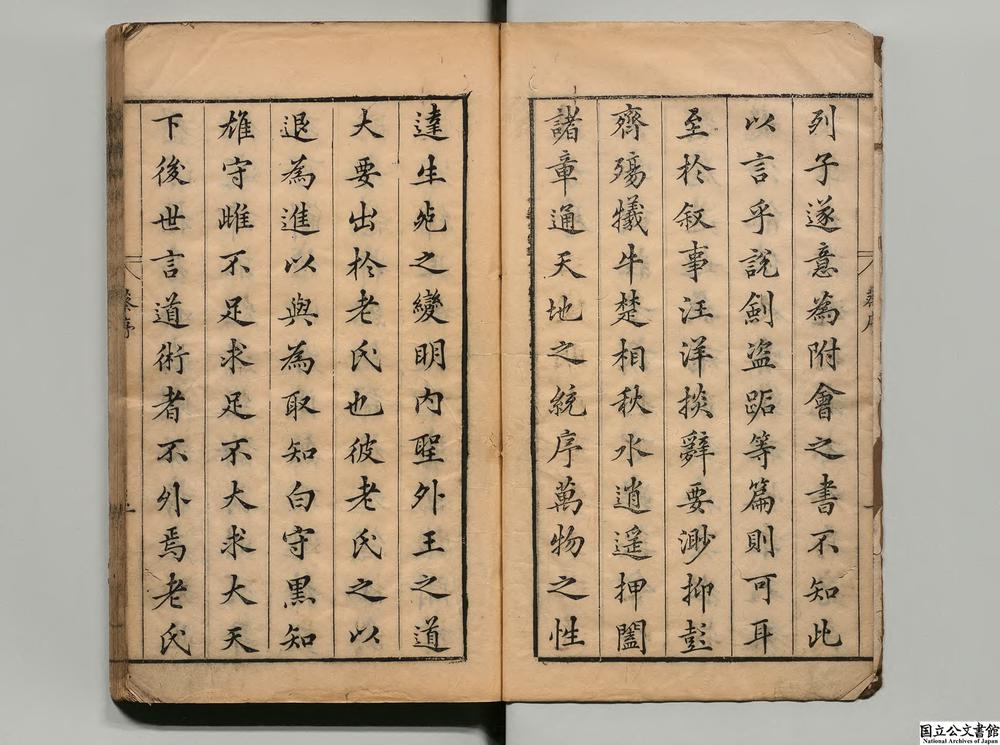 列子遂意為附會之書不知此
以言乎說劍盗跖等篇則可耳
至於叙事汪洋掞辭要渺抑彭
齊殤犧牛楚相秋水逍遥押闔
諸章通天地之統序萬物之性
達生死之變明内聖外王之道
大要出於老氏也彼老氏之以
退為進以與為取知白守黒知
雄守雌不足求足不大求大天
下後世言道術者不外焉老氏
国立公文書館
National Archives of Japan